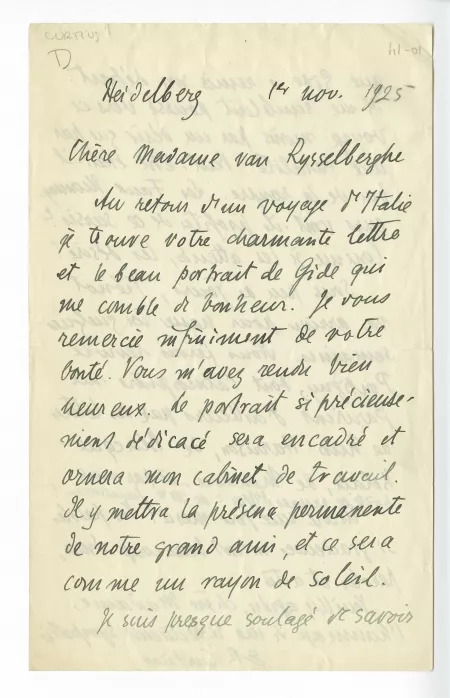 CURTIUS
D
41-01
Heidelberg 1er nov. 1925
Chère Madame van Rysselberghe
Au retour d'un voyage d'Italie
je trouve votre charmante lettre
et le beau portrait de Gide qui
me comble de bonheur. Je vous
remercie infiniment de votre
bonté. Vous m'avez rendu bien
heureux. Le portrait si précieuse-
ment dédicacé sera encadré et
ornera mon cabinet de travail.
Il y mettra la présence permanente
de notre grand ami, et ce sera
comme un rayon de soleil.
Je suis presque soulagé de savoir